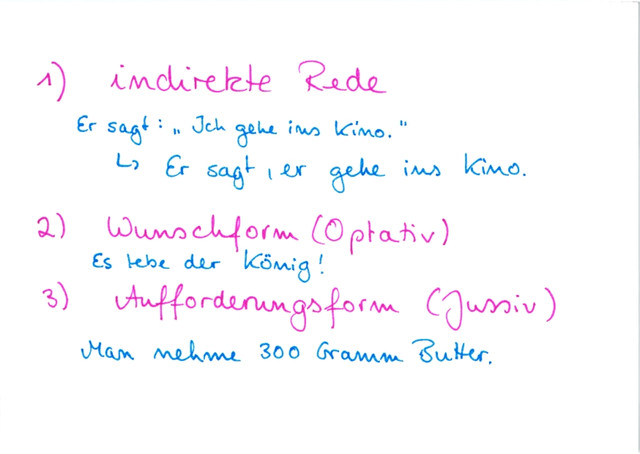 1) indirekte Rede
Er sagt: „Ich gehe ins Kino."
↳ Er sagt, er gehe ins Kino.
2) Wunschform (Optativ)
Es lebe der König!
3) Aufforderungsform (Jussiv)
Man nehme 300 Gramm Butter.